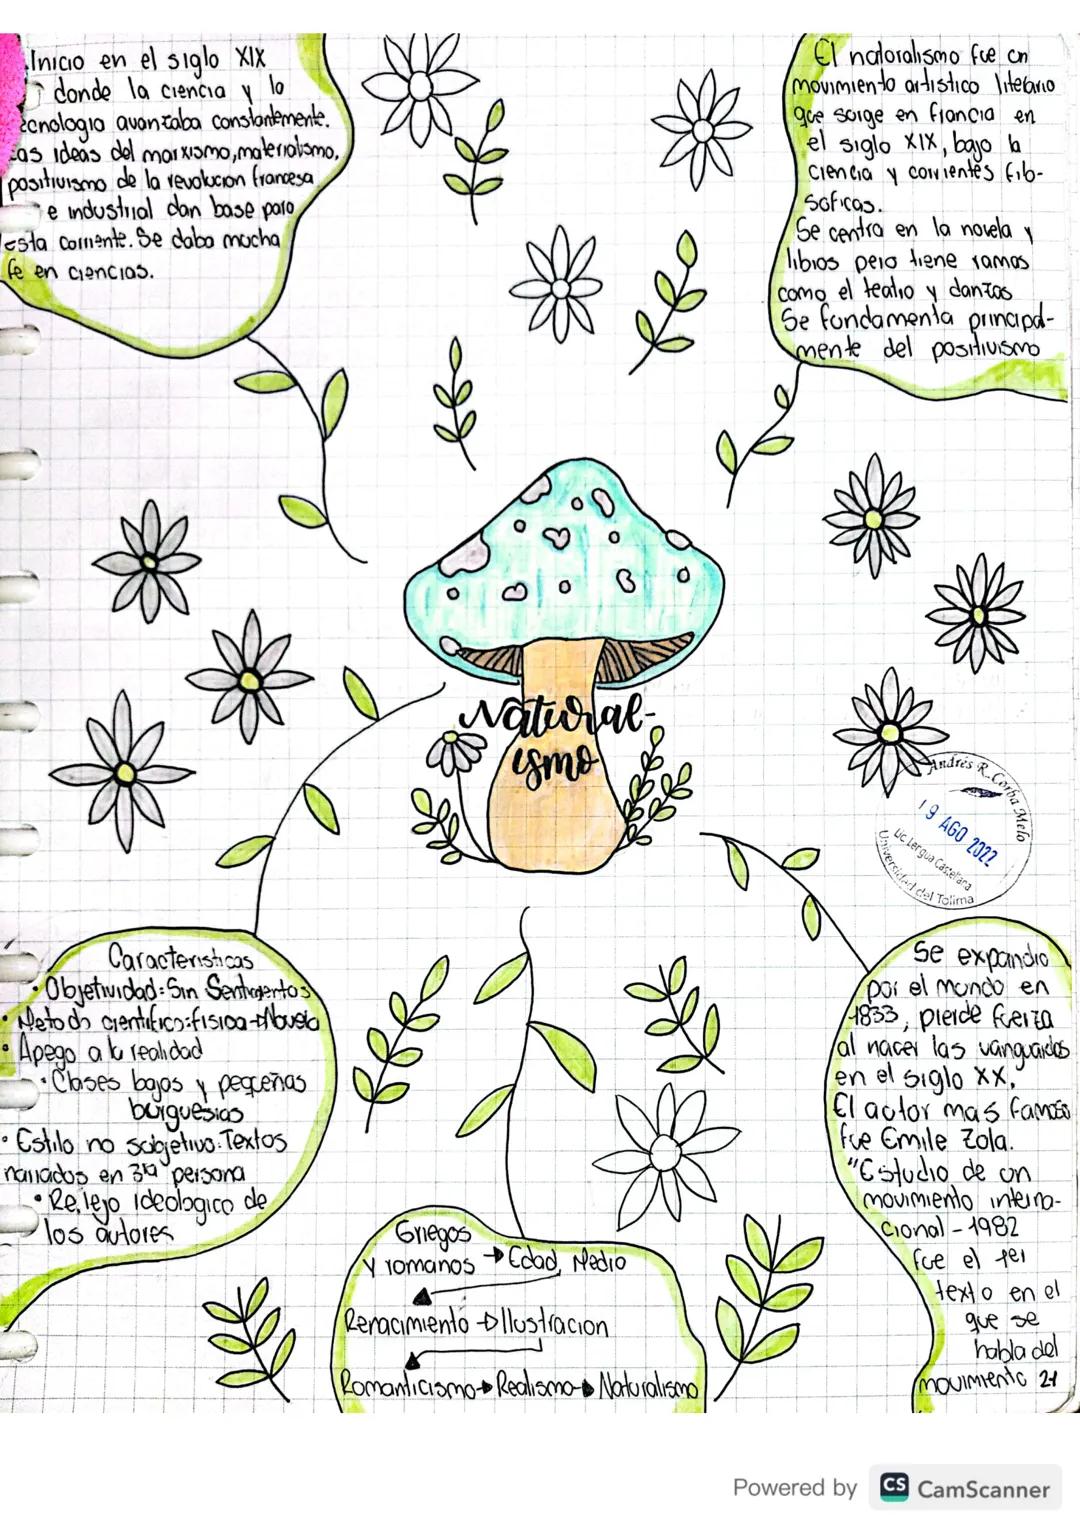 Inicio en el siglo XIX
donde la ciencia y la
ecnologia avanzaba constantemente.
as ideas del marxismo, materialismo,
positivismo de la revolucion francesa
e industrial dan base para
esta corriente. Se daba mucha
fe en ciencias.
El naturalismo fue un
movimiento artistico literario
que surge en francia en
el siglo XIX, bajo la
ciencia y corrientes filo-
soficas.
Se centra en la novela y
libros pero tiene ramas
como el teatro y danzas
Se fundamenta principal-
mente del positivismo
Natural-
ismo
Andrés R. Corba Melo
19 AGO 2022
Lic Lengua Castellana
Universidad del Tolima
Caracteristicas
• Objetividad: Sin Sentimientos
• Metodo cientifico: fisica → Novela
• Apego a la realidad
• Clases bajas y pequeñas
burguesias
• Estilo no subjetivo: Textos
narrados en 3ra persona
• Reflejo ideologico de
los autores
Griegos
y romanos → Edad Media
Renacimiento → Ilustracion
Romanticismo → Realismo → Naturalismo
Se expandio
por el mundo en
1833, pierde fuerza
al nacer las vanguardas
en el siglo XX,
El autor mas famoso
fue Emile Zola.
"Estudio de un
movimiento interna-
cional - 1982
fue el 1er
texto en el
que se
habla del
movimiento 21
Powered by CS CamScanner